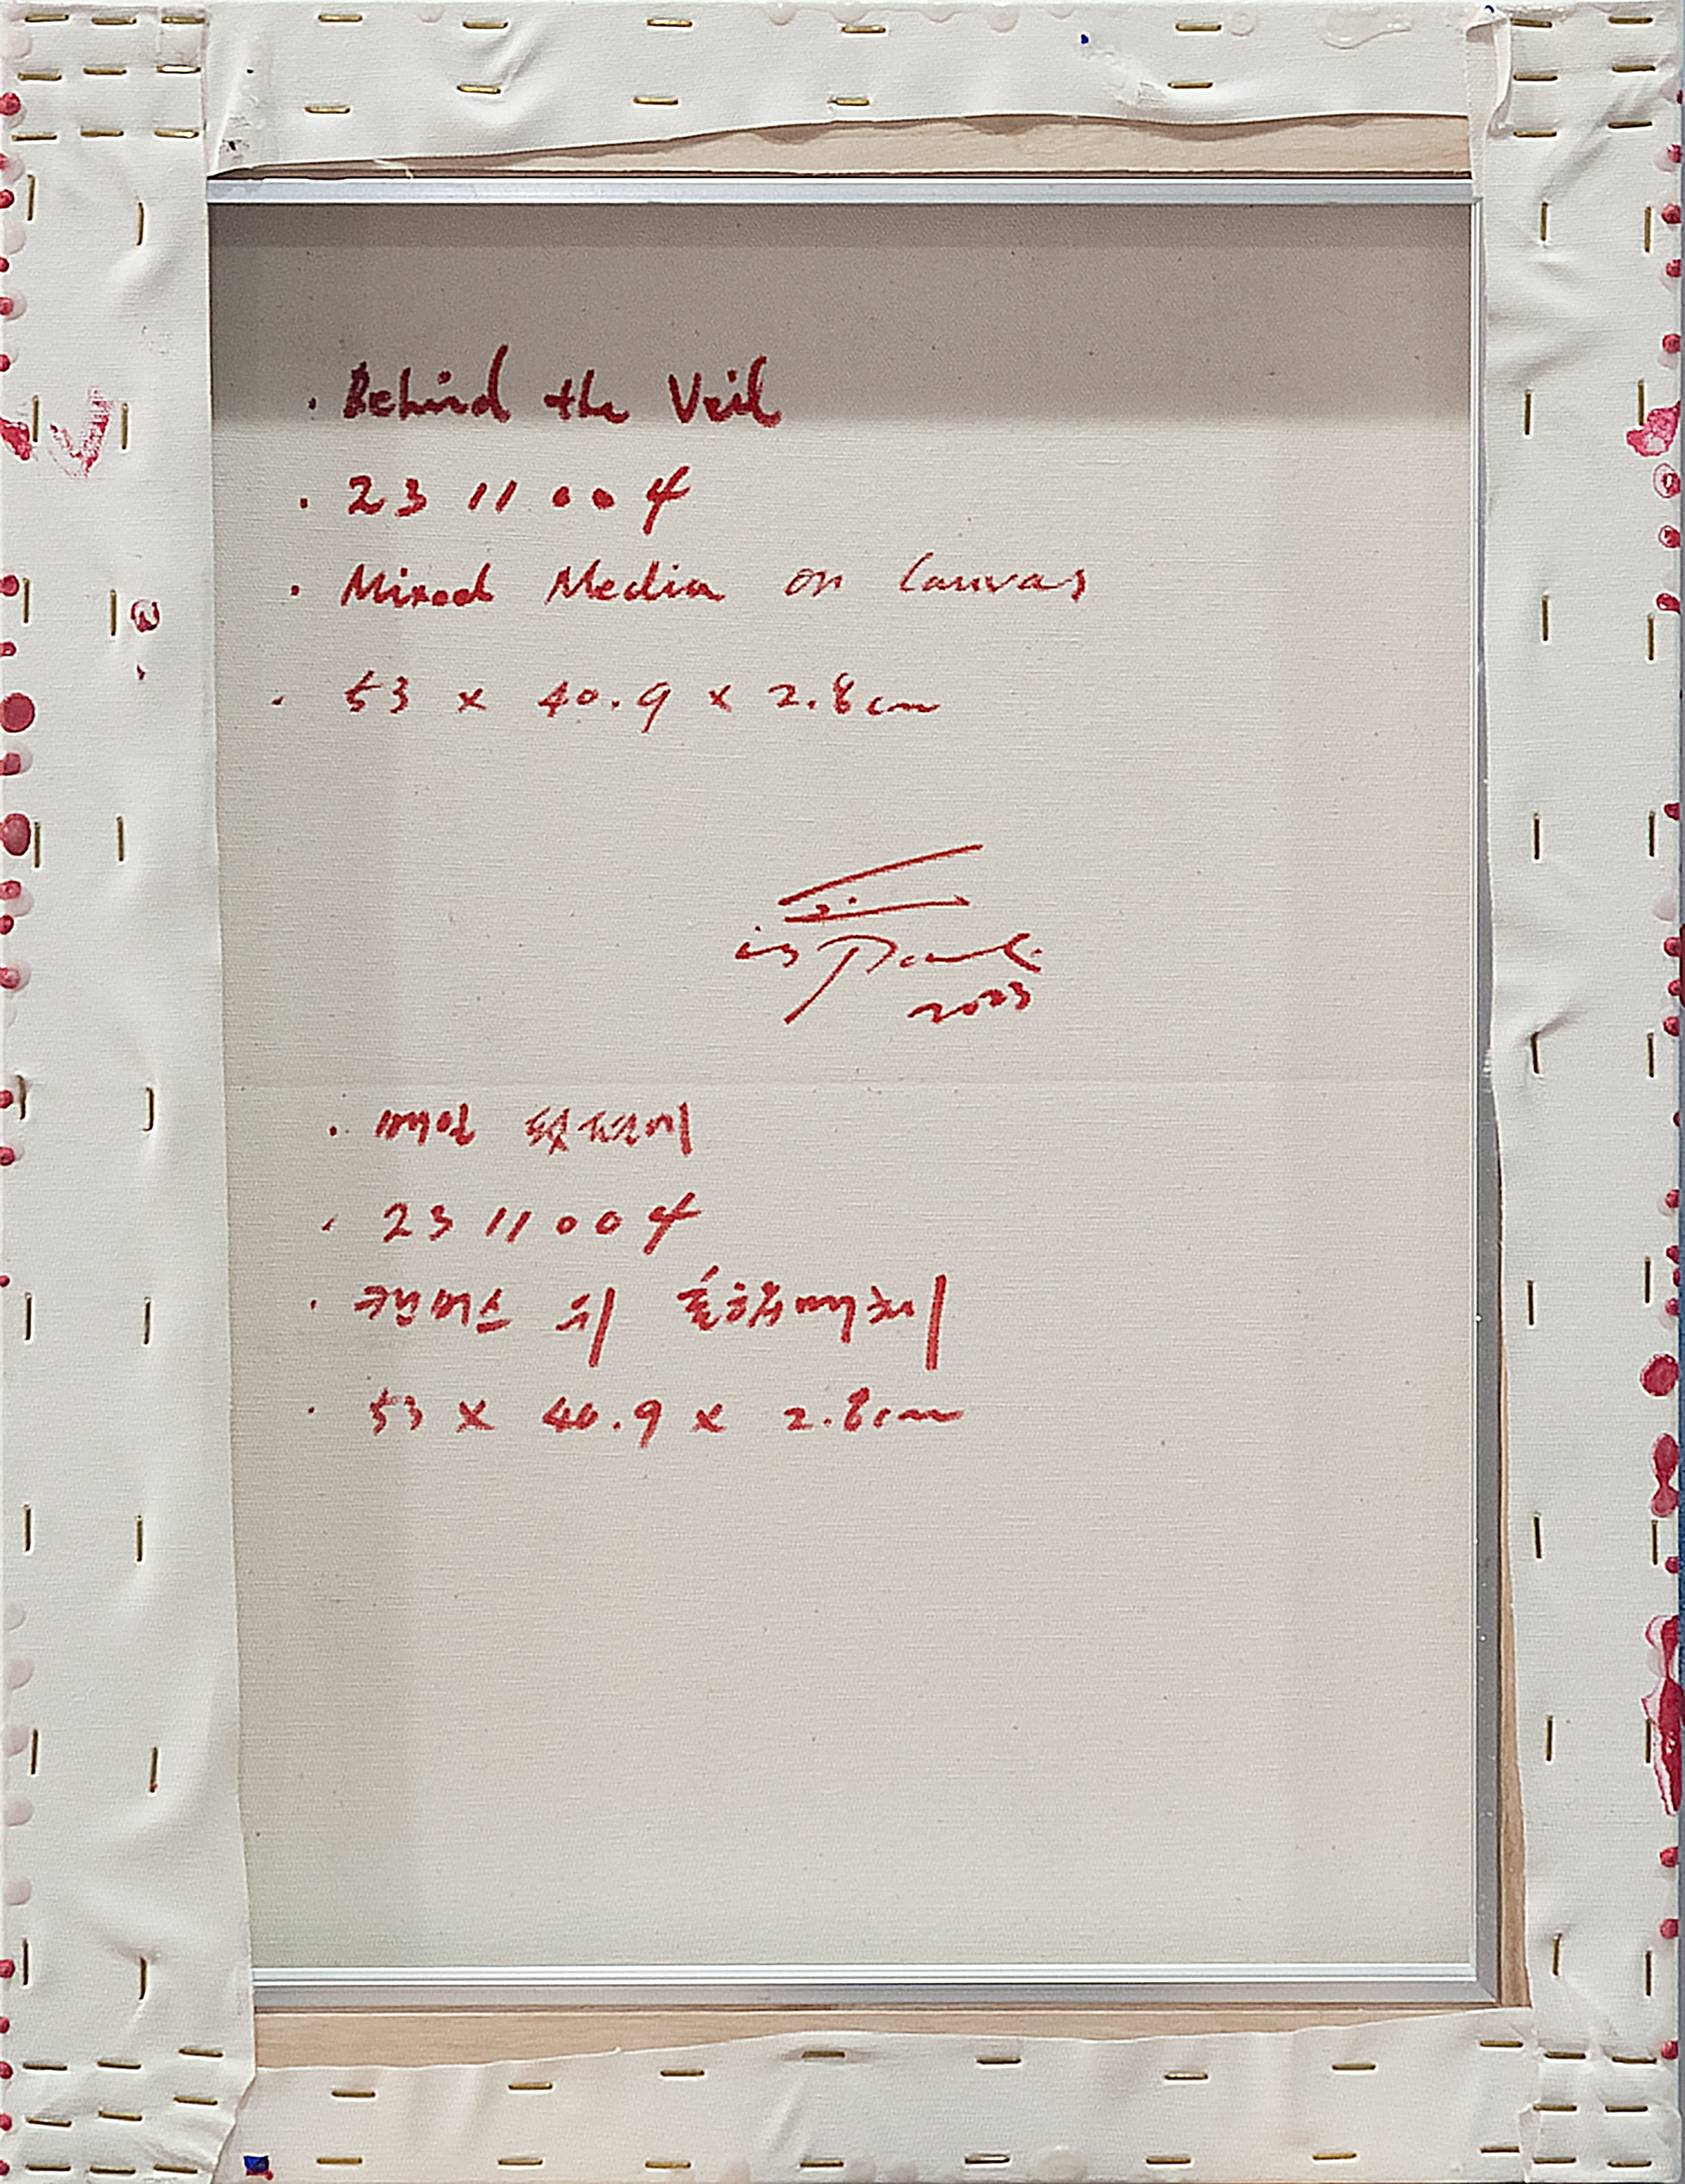 · Behind the Veil
· 23 11 004
· Mixed Media on Canvas
· 53 x 40.9 x 2.8cm
2023
· 23 11 004
· 캔버스 위 혼합매체
· 53 x 40.9 x 2.8cm